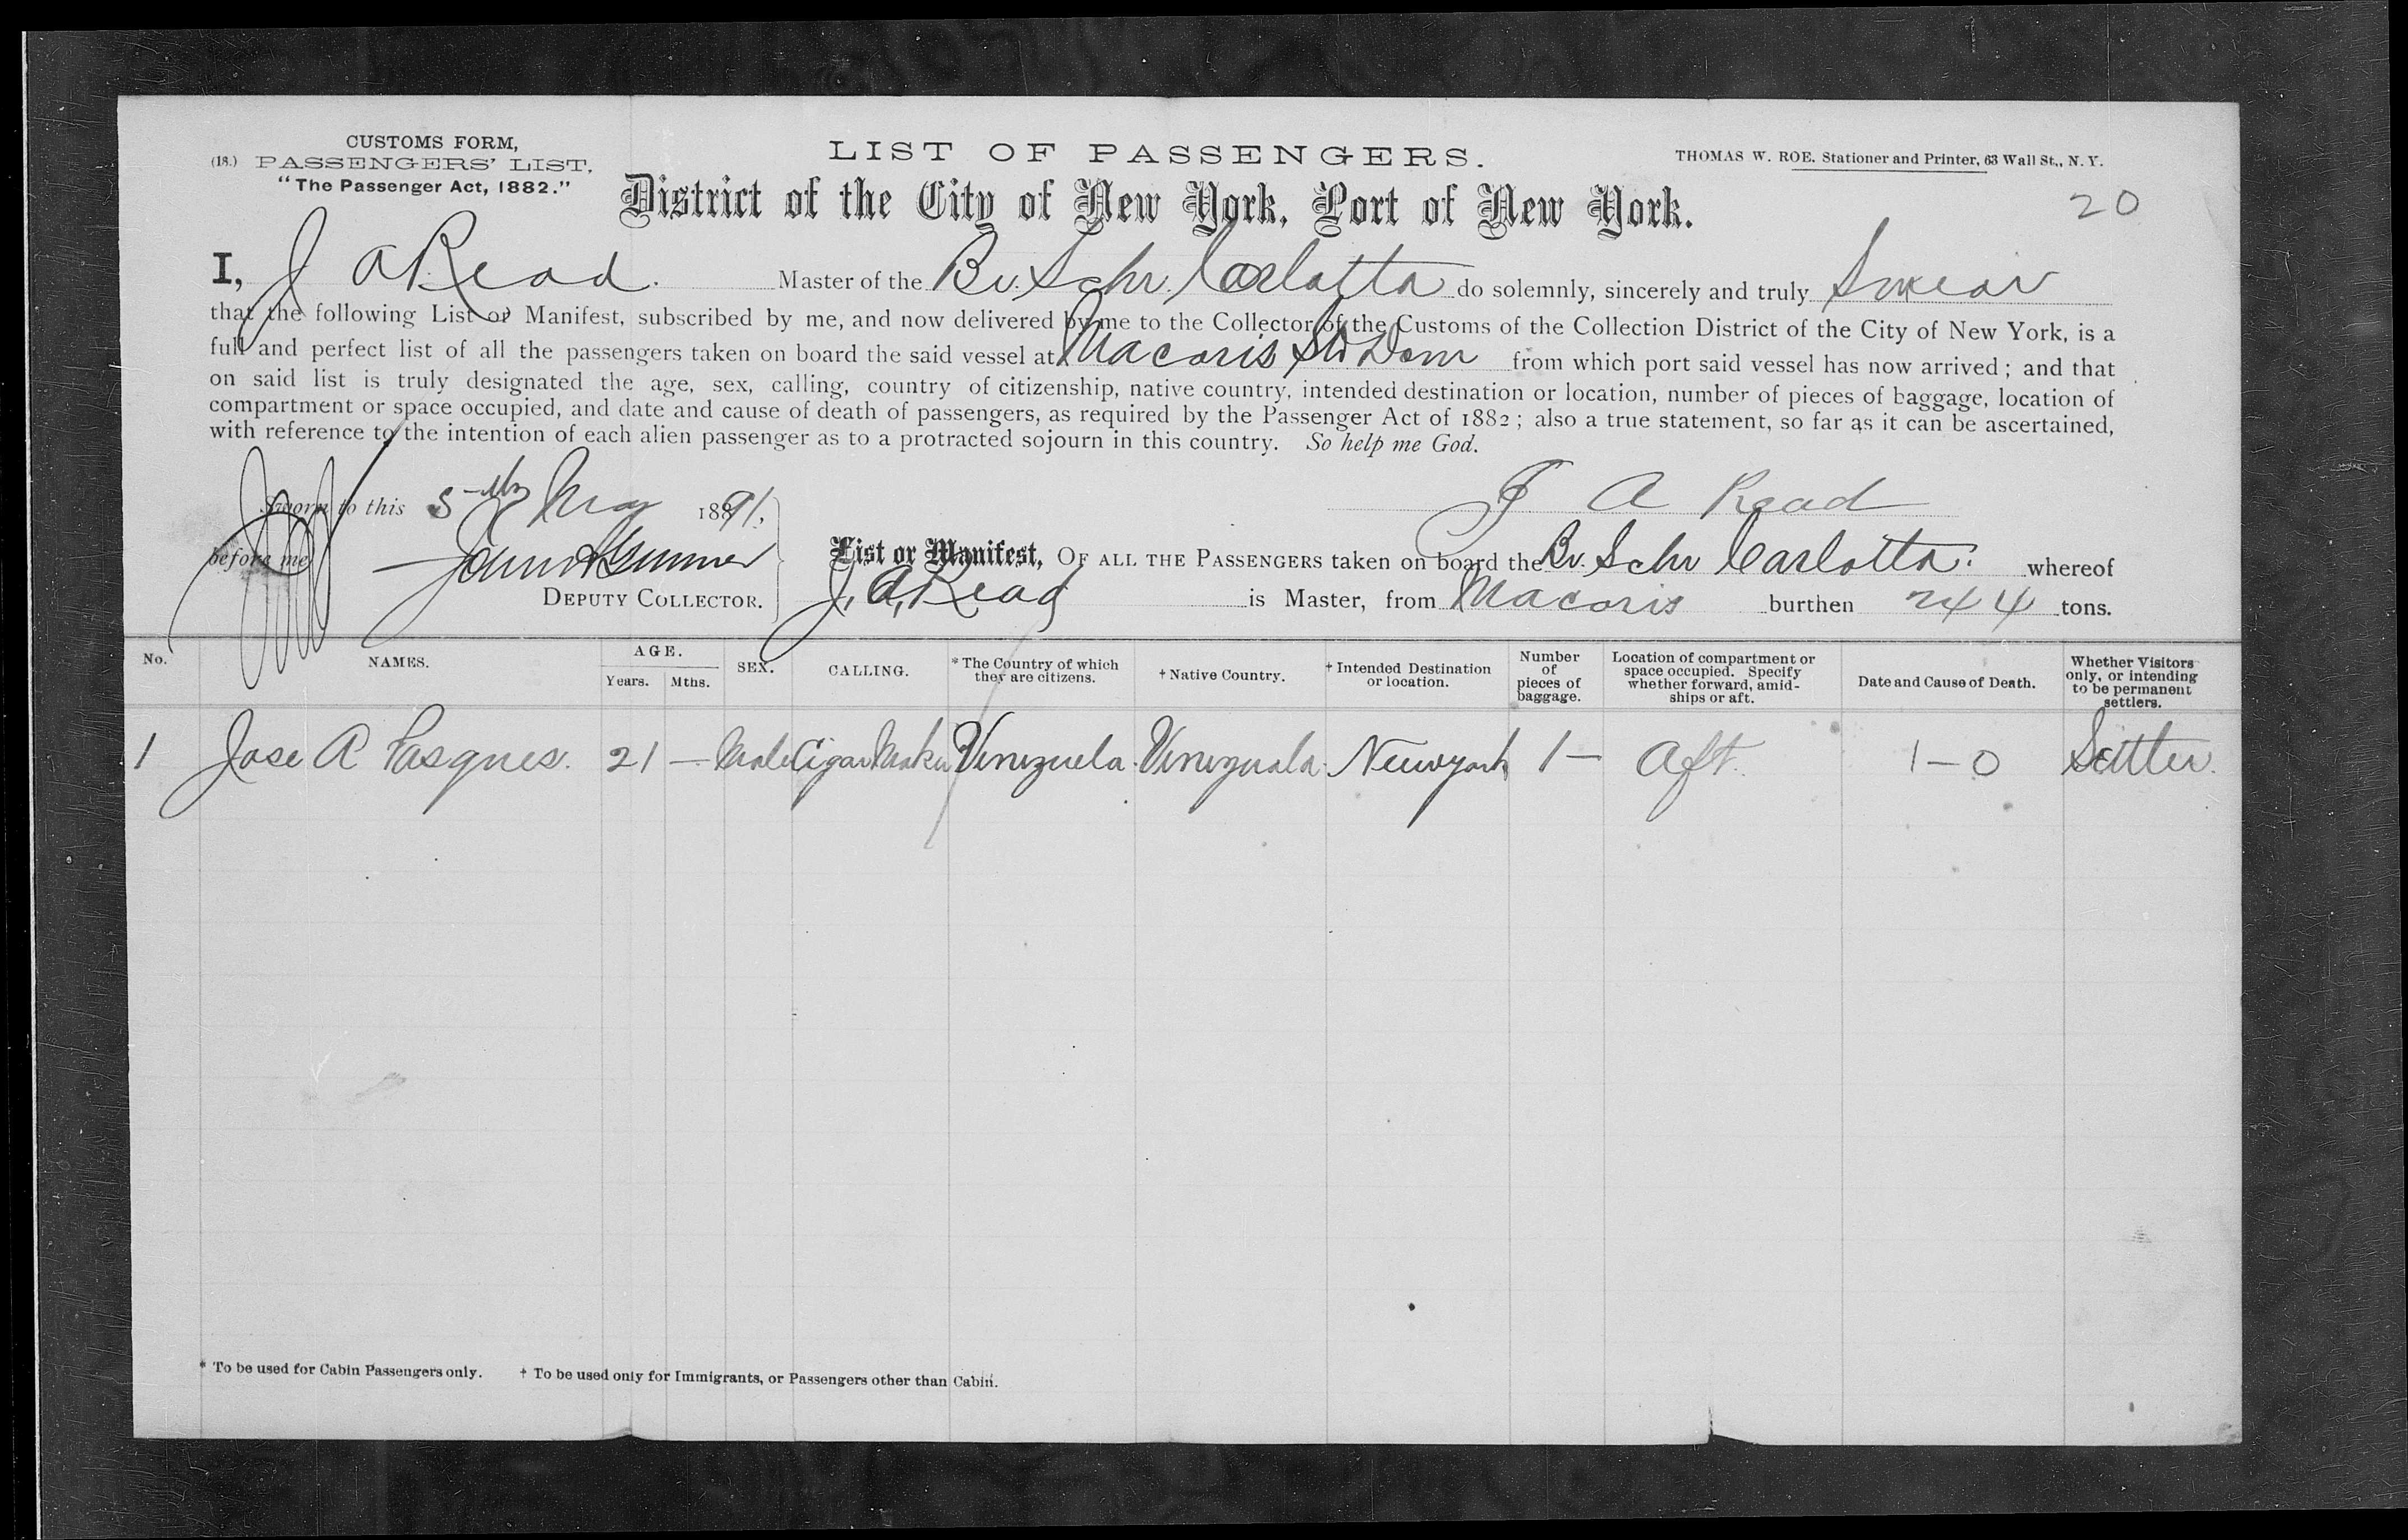 CUSTOMS FORM,
(18.) PASSENGERS' LIST,
"The Passenger Act, 1882."
LIST OF PASSENGERS.
THOMAS W. ROE. Stationer and Printer, 63 Wall St., N. Y.
District of the City of New York, Port of New York.
20
I, J A Read. Master of the Br. Schr. Carlotta do solemnly, sincerely and truly Swear
that the following List or Manifest, subscribed by me, and now delivered by me to the Collector of the Customs of the Collection District of the City of New York, is a
full and perfect list of all the passengers taken on board the said vessel at Macoris St Dom from which port said vessel has now arrived; and that
on said list is truly designated the age, sex, calling, country of citizenship, native country, intended destination or location, number of pieces of baggage, location of
compartment or space occupied, and date and cause of death of passengers, as required by the Passenger Act of 1882; also a true statement, so far as it can be ascertained,
with reference to the intention of each alien passenger as to a protracted sojourn in this country. So help me God.
Sworn to this 5th May 1891,
J A Read
before me
DEPUTY COLLECTOR.
List or Manifest, OF ALL THE PASSENGERS taken on board the Br. Schr Carlotta. whereof
J. A. Read is Master, from Macoris burthen 244 tons.
No. NAMES. AGE. Years. Mths. SEX. CALLING. * The Country of which they are citizens. † Native Country. † Intended Destination or location. Number of pieces of baggage. Location of compartment or space occupied. Specify whether forward, amid-ships or aft. Date and Cause of Death. Whether Visitors only, or intending to be permanent settlers.
1 Jose A Pasques. 21 — Male Cigar Maker Venezuela Venezuala Newyork 1 — Aft. 1 – 0 Settler.
* To be used for Cabin Passengers only. † To be used only for Immigrants, or Passengers other than Cabin.